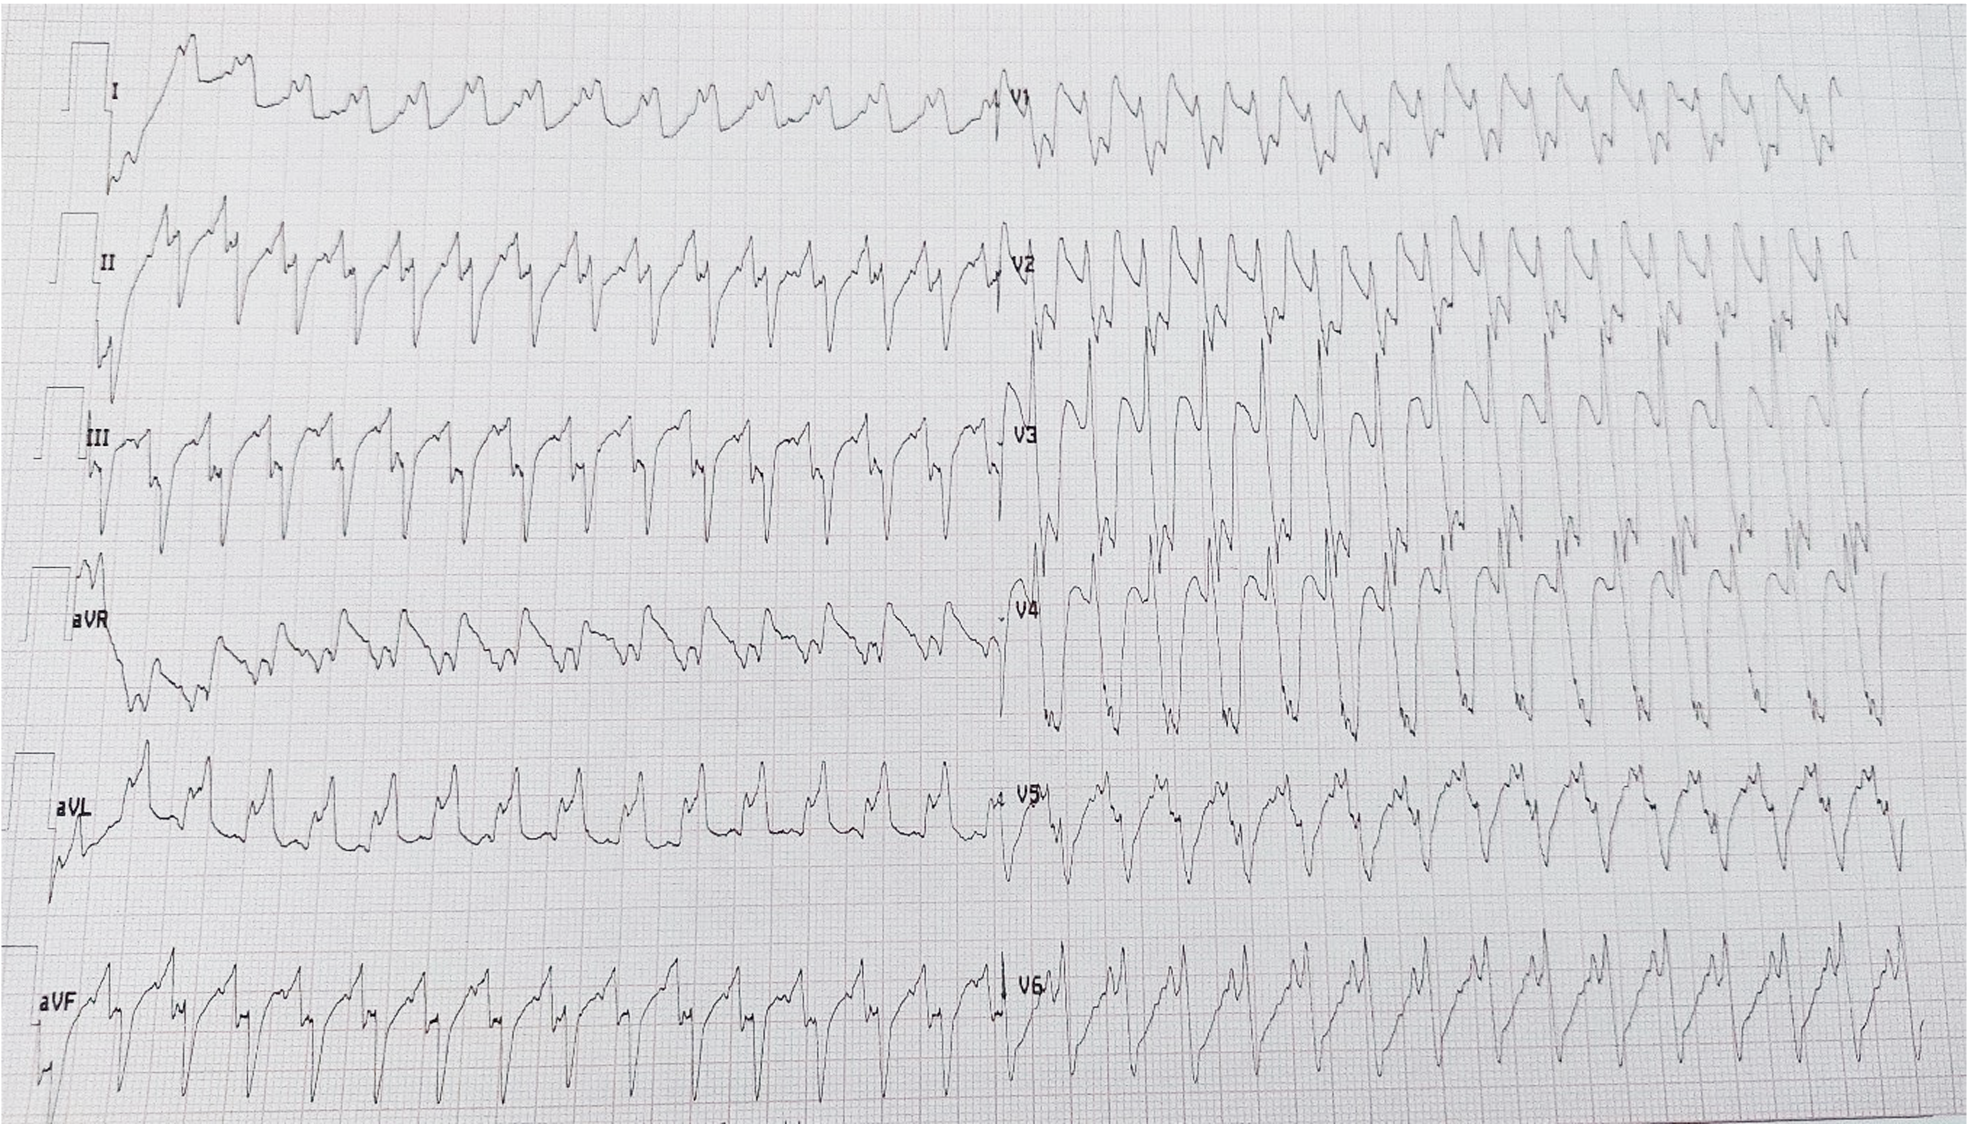 I
V1
II
V2
III
V3
aVR
V4
aVL
V5
aVF
V6